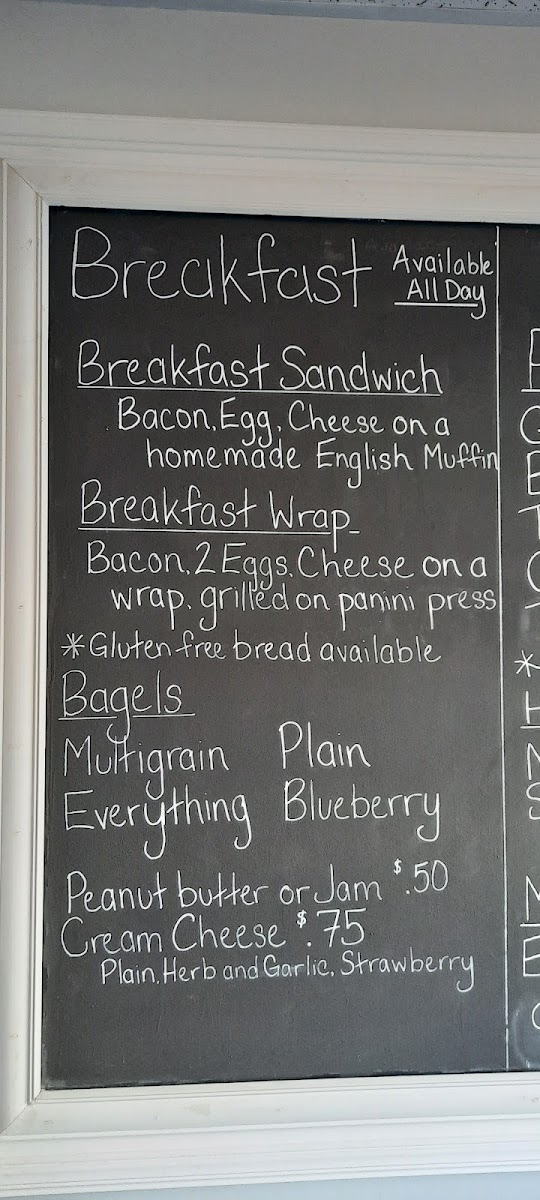 Breakfast Available All Day
Breakfast Sandwich
Bacon, Egg, Cheese on a
homemade English Muffin
Breakfast Wrap
Bacon, 2 Eggs, Cheese on a
wrap, grilled on panini press
*Gluten free bread available
Bagels
Multigrain Plain
Everything Blueberry
Peanut butter or Jam $.50
Cream Cheese $.75
Plain, Herb and Garlic, Strawberry